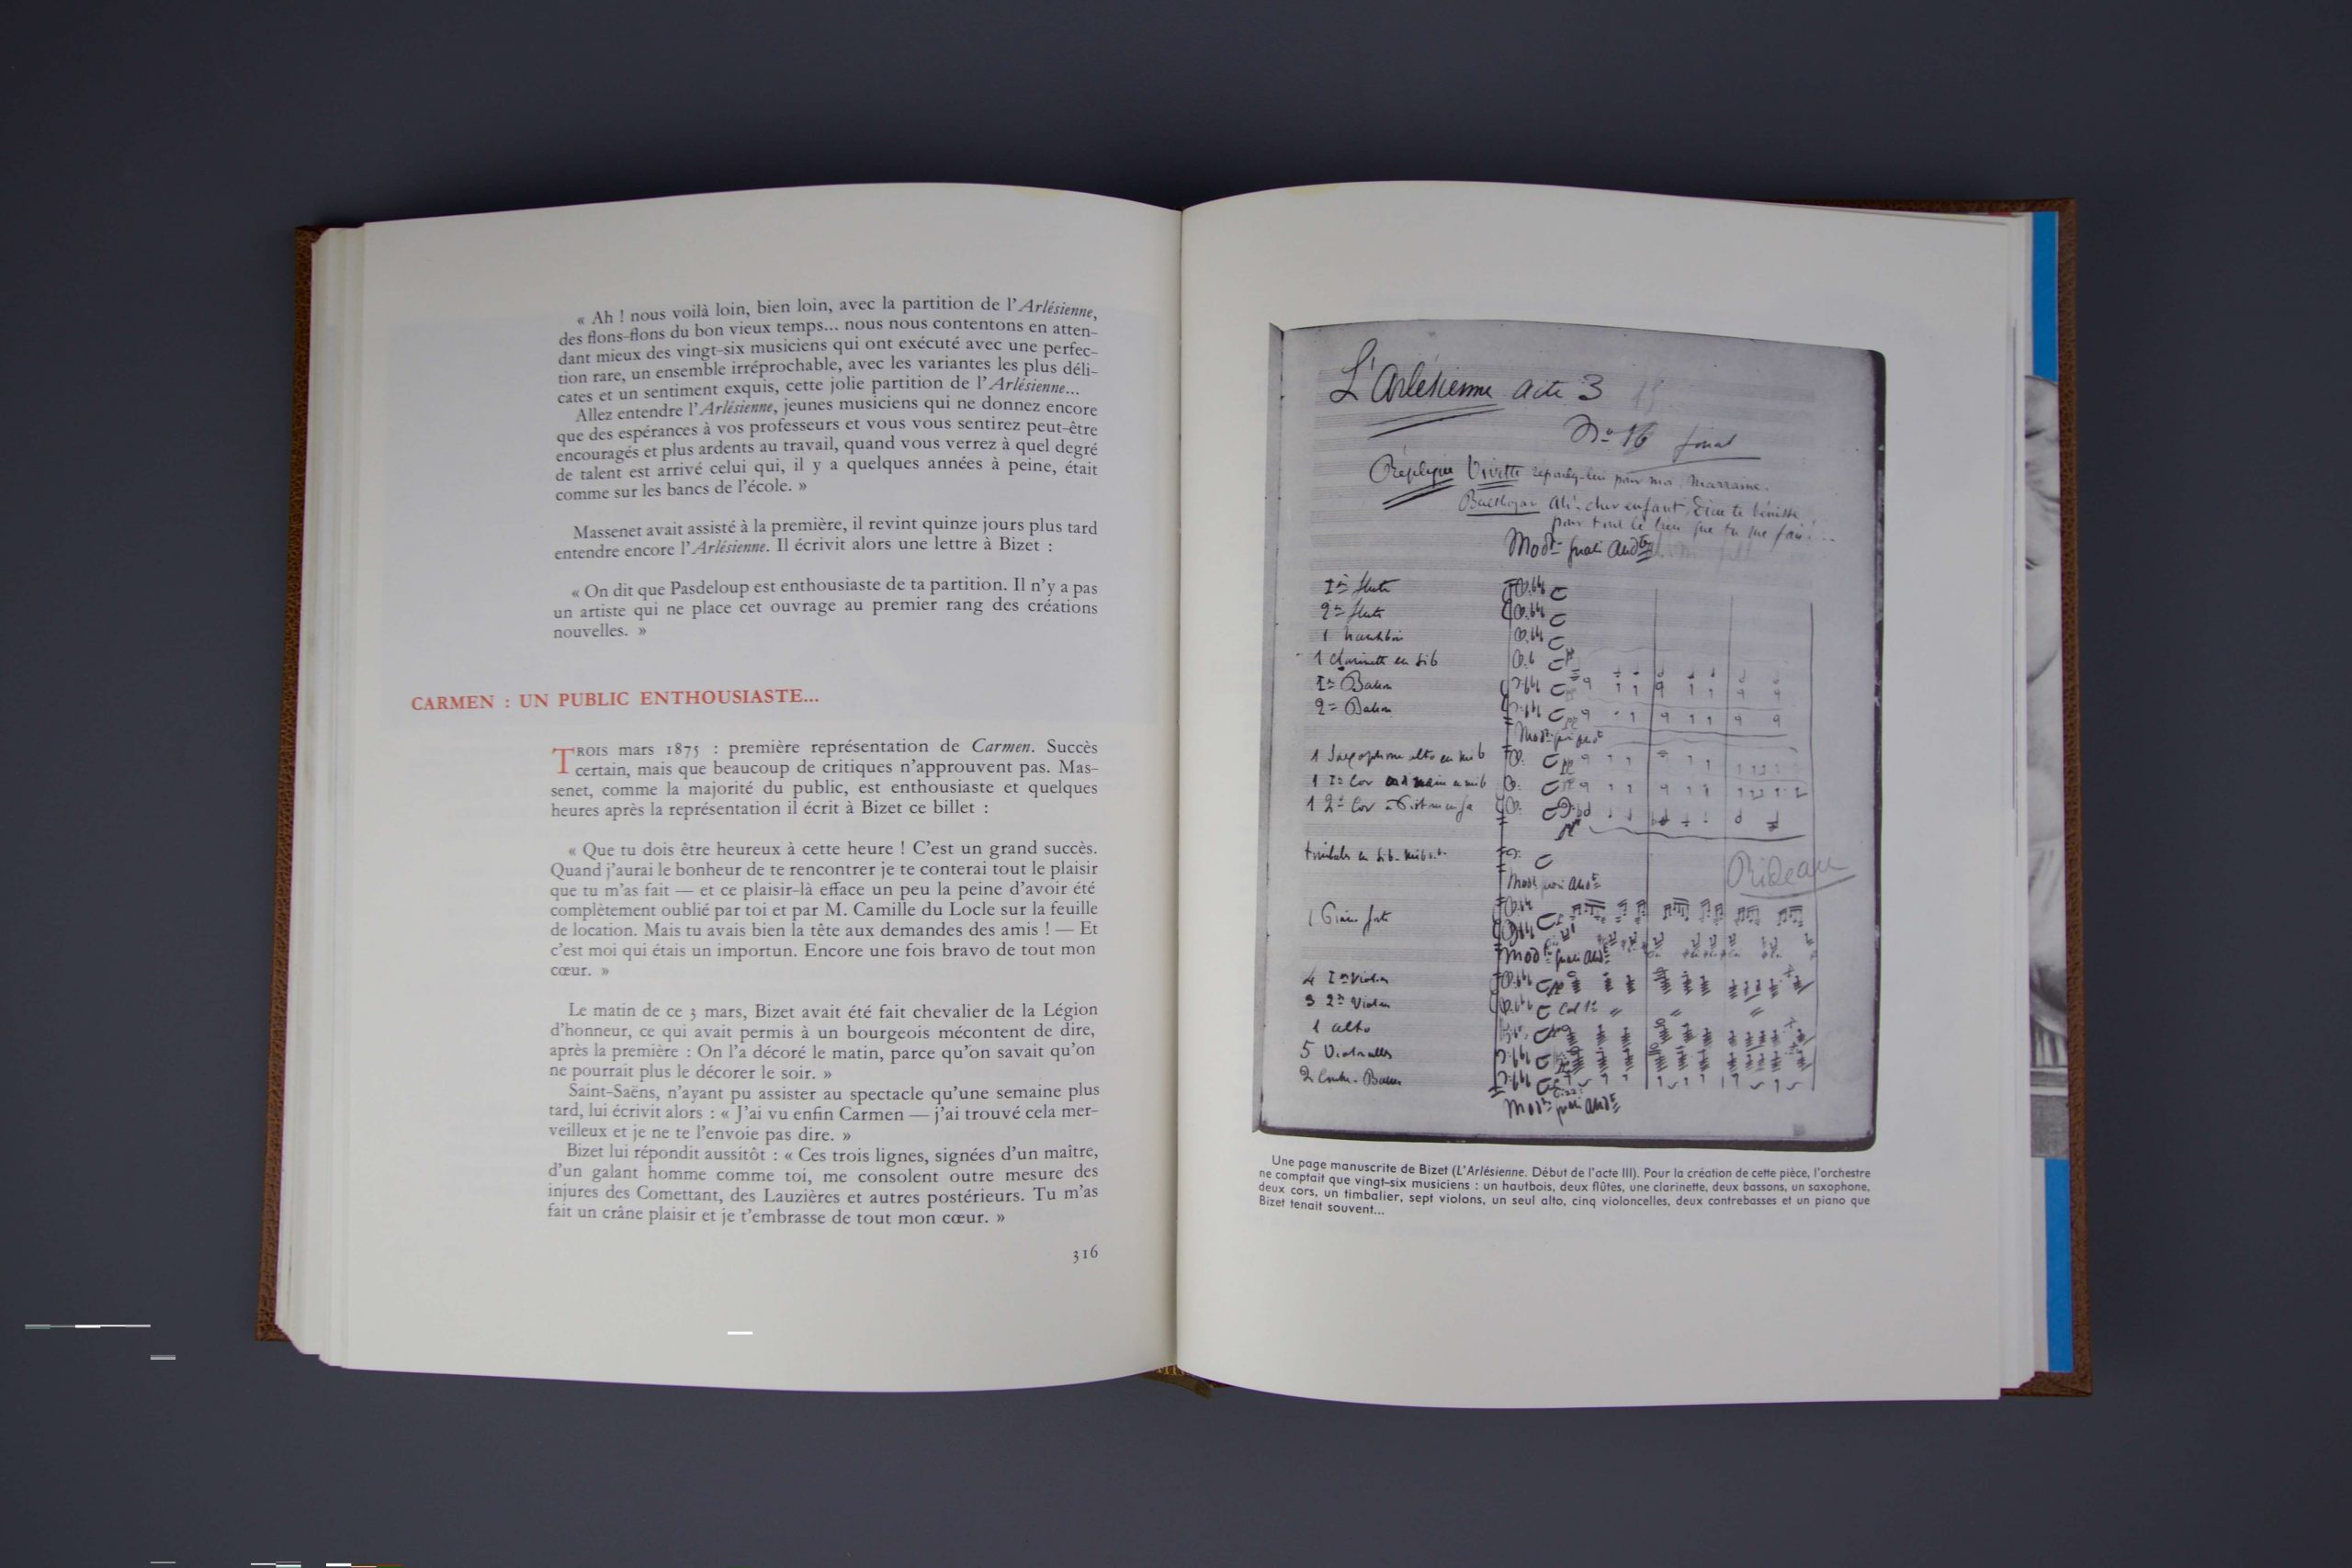 « Ah ! nous voilà loin, bien loin, avec la partition de l'Arlésienne,
des flons-flons du bon vieux temps... nous nous contentons en atten-
dant mieux des vingt-six musiciens qui ont exécuté avec une perfec-
tion rare, un ensemble irréprochable, avec les variantes les plus déli-
cates et un sentiment exquis, cette jolie partition de l'Arlésienne...
Allez entendre l'Arlésienne, jeunes musiciens qui ne donnez encore
que des espérances à vos professeurs et vous vous sentirez peut-être
encouragés et plus ardents au travail, quand vous verrez à quel degré
de talent est arrivé celui qui, il y a quelques années à peine, était
comme sur les bancs de l'école. »
Massenet avait assisté à la première, il revint quinze jours plus tard
entendre encore l'Arlésienne. Il écrivit alors une lettre à Bizet :
« On dit que Pasdeloup est enthousiaste de ta partition. Il n'y a pas
un artiste qui ne place cet ouvrage au premier rang des créations
nouvelles. »
CARMEN : UN PUBLIC ENTHOUSIASTE...
TROIS mars 1875 : première représentation de Carmen. Succès
certain, mais que beaucoup de critiques n'approuvent pas. Mas-
senet, comme la majorité du public, est enthousiaste et quelques
heures après la représentation il écrit à Bizet ce billet :
« Que tu dois être heureux à cette heure ! C'est un grand succès.
Quand j'aurai le bonheur de te rencontrer je te conterai tout le plaisir
que tu m'as fait — et ce plaisir-là efface un peu la peine d'avoir été
complètement oublié par toi et par M. Camille du Locle sur la feuille
de location. Mais tu avais bien la tête aux demandes des amis ! — Et
c'est moi qui étais un importun. Encore une fois bravo de tout mon
cœur. »
Le matin de ce 3 mars, Bizet avait été fait chevalier de la Légion
d'honneur, ce qui avait permis à un bourgeois mécontent de dire,
après la première : On l'a décoré le matin, parce qu'on savait qu'on
ne pourrait plus le décorer le soir. »
Saint-Saëns, n'ayant pu assister au spectacle qu'une semaine plus
tard, lui écrivit alors : « J'ai vu enfin Carmen — j'ai trouvé cela mer-
veilleux et je ne te l'envoie pas dire. »
Bizet lui répondit aussitôt : « Ces trois lignes, signées d'un maître,
d'un galant homme comme toi, me consolent outre mesure des
injures des Comettant, des Lauzières et autres postérieurs. Tu m'as
fait un crâne plaisir et je t'embrasse de tout mon cœur. »
316
L'Arlésienne acte 3
No 16 final
Réplique Vivette répondez-lui pour moi, Marraine.
Balthazar Ah! cher enfant, Dieu te bénisse
pour tout le bien que tu me fais!...
Modto quasi Andte
1re flute
2e flute
1 hautbois
1 clarinette en sib
1er Basson
2e Basson
1 Saxophone alto en mib
1 1er Cor
1 2e Cor à Pistons
timbales
Rideau
1 Piano forte
Modto quasi Andte
4 1ers Violons
3 2ds Violons
1 alto
5 Violoncelles
2 Contre-Basses
Modto quasi Andte
Une page manuscrite de Bizet (L'Arlésienne. Début de l'acte III). Pour la création de cette pièce, l'orchestre
ne comptait que vingt-six musiciens : un hautbois, deux flûtes, une clarinette, deux bassons, un saxophone,
deux cors, un timbalier, sept violons, un seul alto, cinq violoncelles, deux contrebasses et un piano que
Bizet tenait souvent...